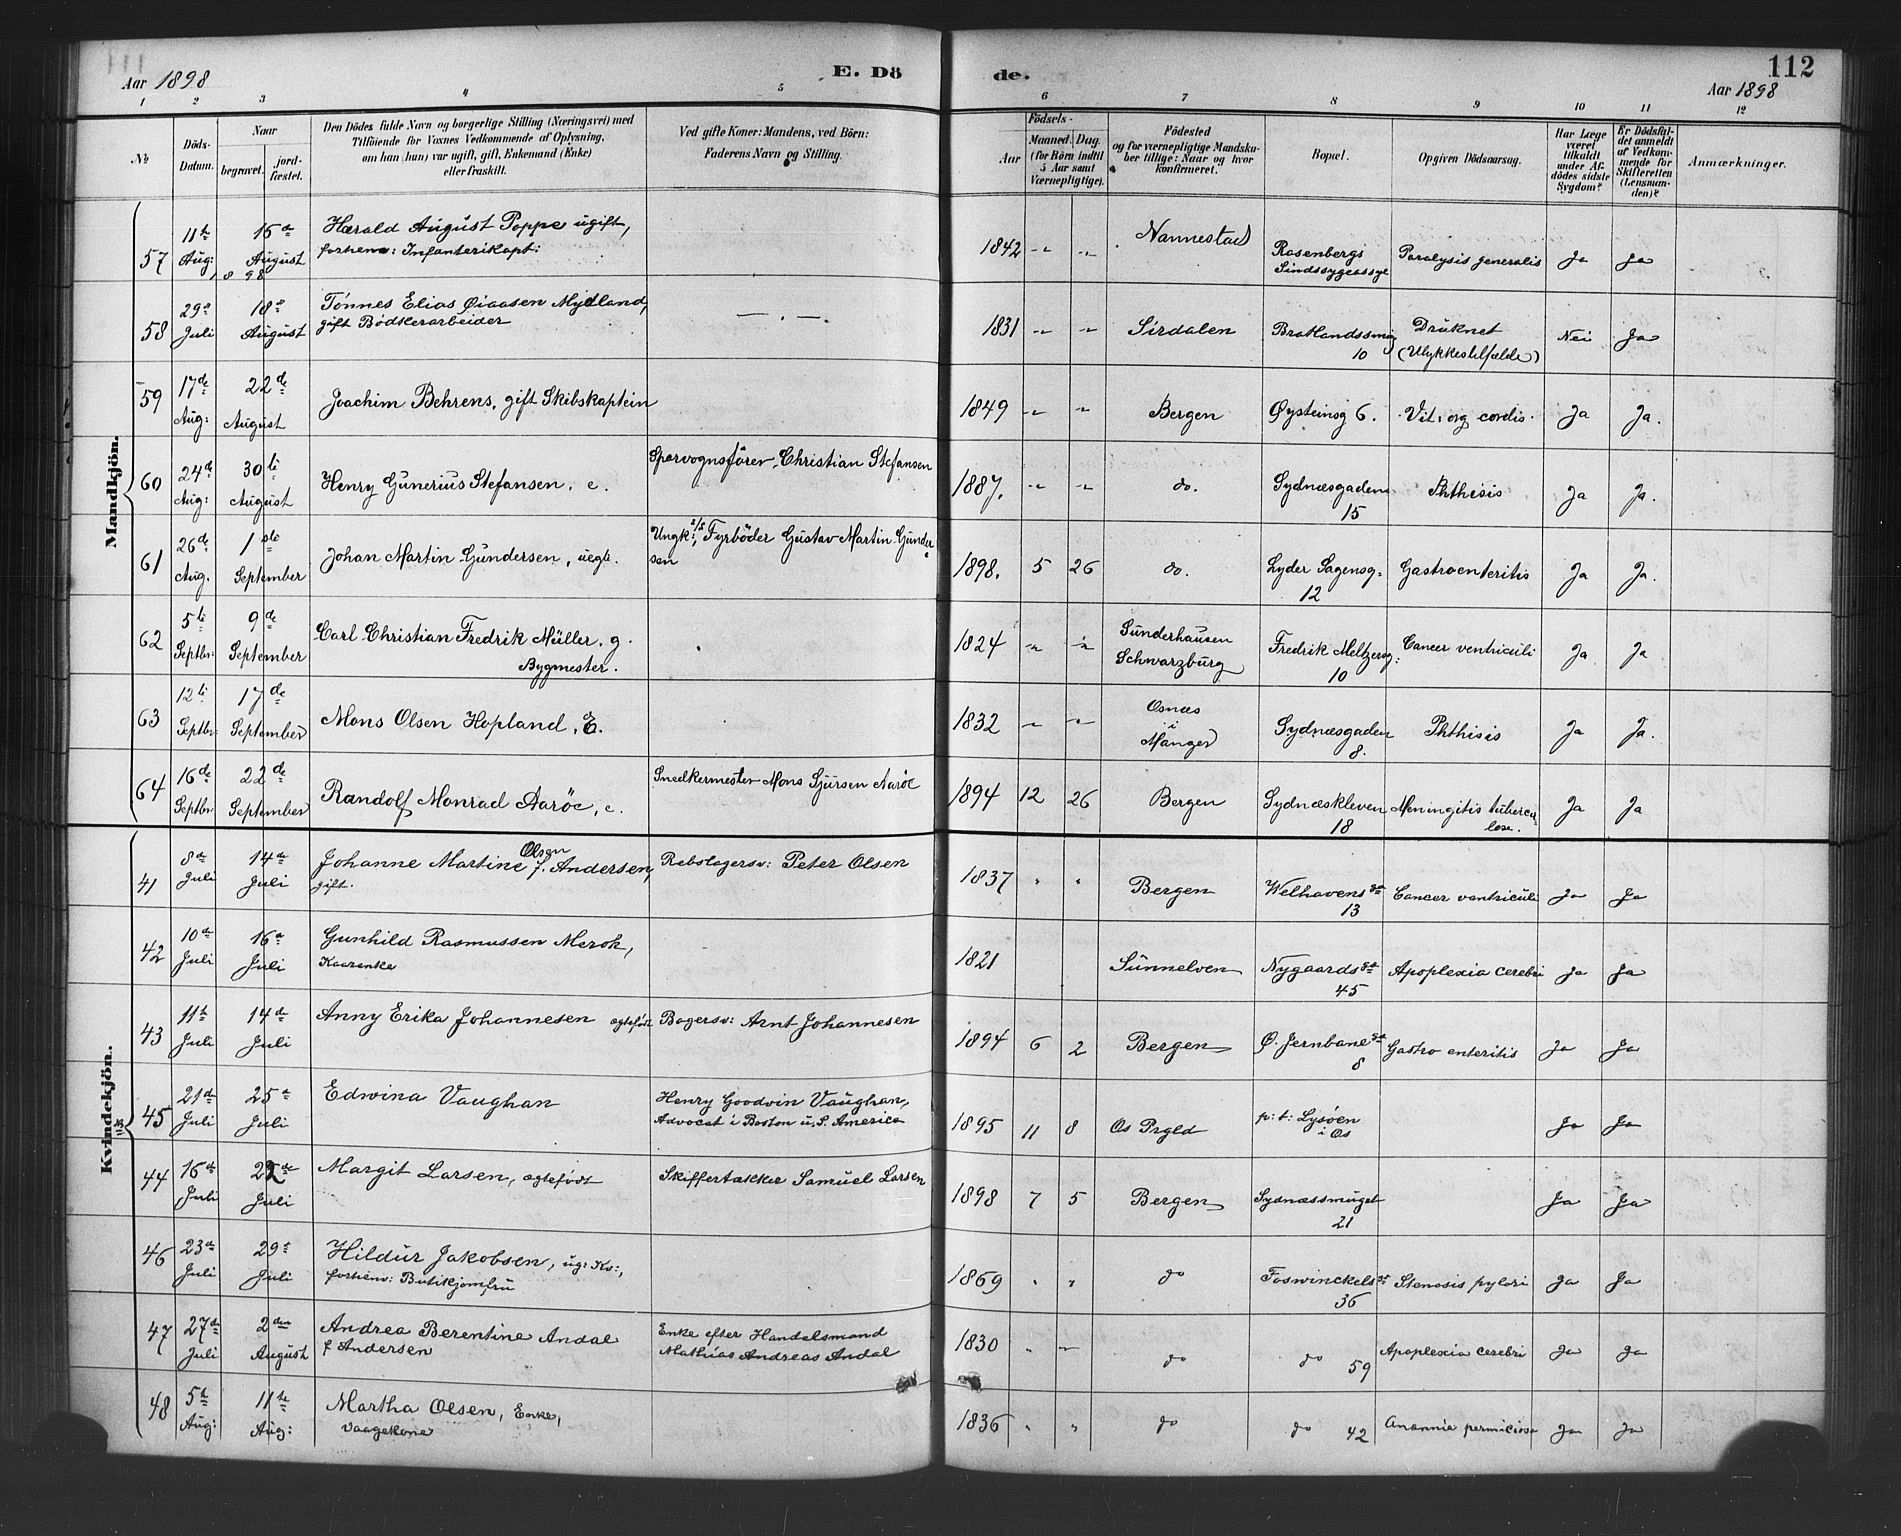 Aar 1898
E. Dö
de.
112
Aar 1898
1 2 3 4 5 6 7 8 9 10 11 12
No
Döds-
Datum.
Naar
begravet.
jord-
fæstet.
Den Dödes fulde Navn og borgerlige Stilling (Næringsvei) med
Tilföiende for Voxnes Vedkommende af Oplysning,
om han (hun) var ugift, gift, Enkemand (Enke)
eller fraskilt.
Ved gifte Koner: Mandens, ved Börn:
Faderens Navn og Stilling.
Födsels-
Aar
Maaned. Dag.
(for Börn indtil
5 Aar samt
Værnepligtige).
Födested
og for værnepligtige Mandska-
ber tillige: Naar og hvor
konfirmeret.
Bopæl.
Opgiven Dödsaarsag.
Har Læge
været
tilkaldt
under Af-
dödes sidste
Sygdom?
Er Dödsfal-
det anmeldt
af Vedkom-
mende for
Skifteretten
(Lensman-
den)?
Anmærkninger.
Mandkjön.
57 11te Aug: 1898 16de August Harald August Poppe ugift,
forhenv: Infanterikapt:
1842 Nannestad Rosenbergs
Sindssygeasyl Paralysis generalis Ja Ja
58 29de Juli 18de August Tönnes Elias Øiaasen Mydland,
gift Bödkerarbeider
1831 Sirdalen Bratlandssmug
10 Druknet
(Ulykkestilfælde) Nei Ja
59 17de Aug: 22de August Joachim Behrens, gift Skibskaptein
1849 Bergen Øysteinsg 6. Vit. org cordis Ja Ja.
60 24de Aug: 30te August Henry Gunerius Stefansen, e. Sporvognsförer Christian Stefansen
1887. do. Sydnæsgaden
15 Phthisis Ja Ja.
61 26de Aug. 1ste September Johan Martin Gundersen, uegte. Ungk: Fyrböder Gustav Martin Gunder
sen
1898. 5 26 do. Lyder Sagensg.
12 Gastroenteritis Ja Ja.
62 5te Septbr: 9de September Carl Christian Fredrik Müller, g.
Bygmester.
1824 Sunderhausen
Schwarzburg Fredrik Meltzersg:
10 Cancer ventriculi Ja Ja
63 12te Septbr: 17de September Mons Olsen Hopland, E.
1832 Osnæs
i
Manger Sydnæsgaden
8. Phthisis Ja Ja.
64 16de Septbr: 22de September Randolf Monrad Aaröe, e. Snedkermester Mons Sjursen Aaröe
1894 12 26 Bergen Sydnæskleven
18 Meningitis tubercu-
lose. Ja Ja
Kvindekjön.
41 8de Juli 14de Juli Johanne Martine Olsen f. Andersen,
gift. Rebslagersv: Peter Olsen
1837 Bergen Welhavensgt
13 Cancer ventriculi Ja Ja
42 10de Juli 16de Juli Gunhild Rasmussen Merok,
Kaarenke
1821 Sunnelven Nygaardsgt
45 Apoplexia cerebri Ja Ja
43 11te Juli 14de Juli Anny Erika Johannesen ægtefödt Bagersv: Arnt Johannesen
1894 6 2 Bergen Ø. Jernbanegt
8 Gastro enteritis Ja Ja
45 21de Juli 25de Juli Edwina Vaughan Henry Goodvin Vaughan,
Advocat i Boston u. S. America
1895 11 8 Os Prgld p: t: Lysöen
i Os Ja Ja
44 16de Juli 22de Juli Margit Larsen, ægtefödt Skiffertækker Samuel Larsen
1898 7 5 Bergen Sydnæssmuget
21 Ja Ja
46 23de Juli 29de Juli Hildur Jakobsen, ug: Kv:,
forhenv: Butikjomfru
1869 do Foswinckelsgt
36 Stenosis pylori Ja Ja
47 27de Juli 2den August Andrea Berentine Andal
f Andersen Enke efter Handelsmand
Mathias Andreas Andal
1830 do do 59 Apoplexia cerebri Ja Ja
48 5te Aug: 11te Aug: Martha Olsen, Enke,
Vaagekone
1836 do do 42 Anæmia perniciosa Ja Ja